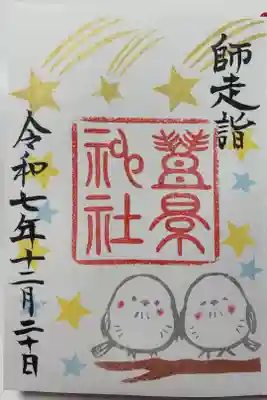 師走詣
神社
令和七年十二月二十日